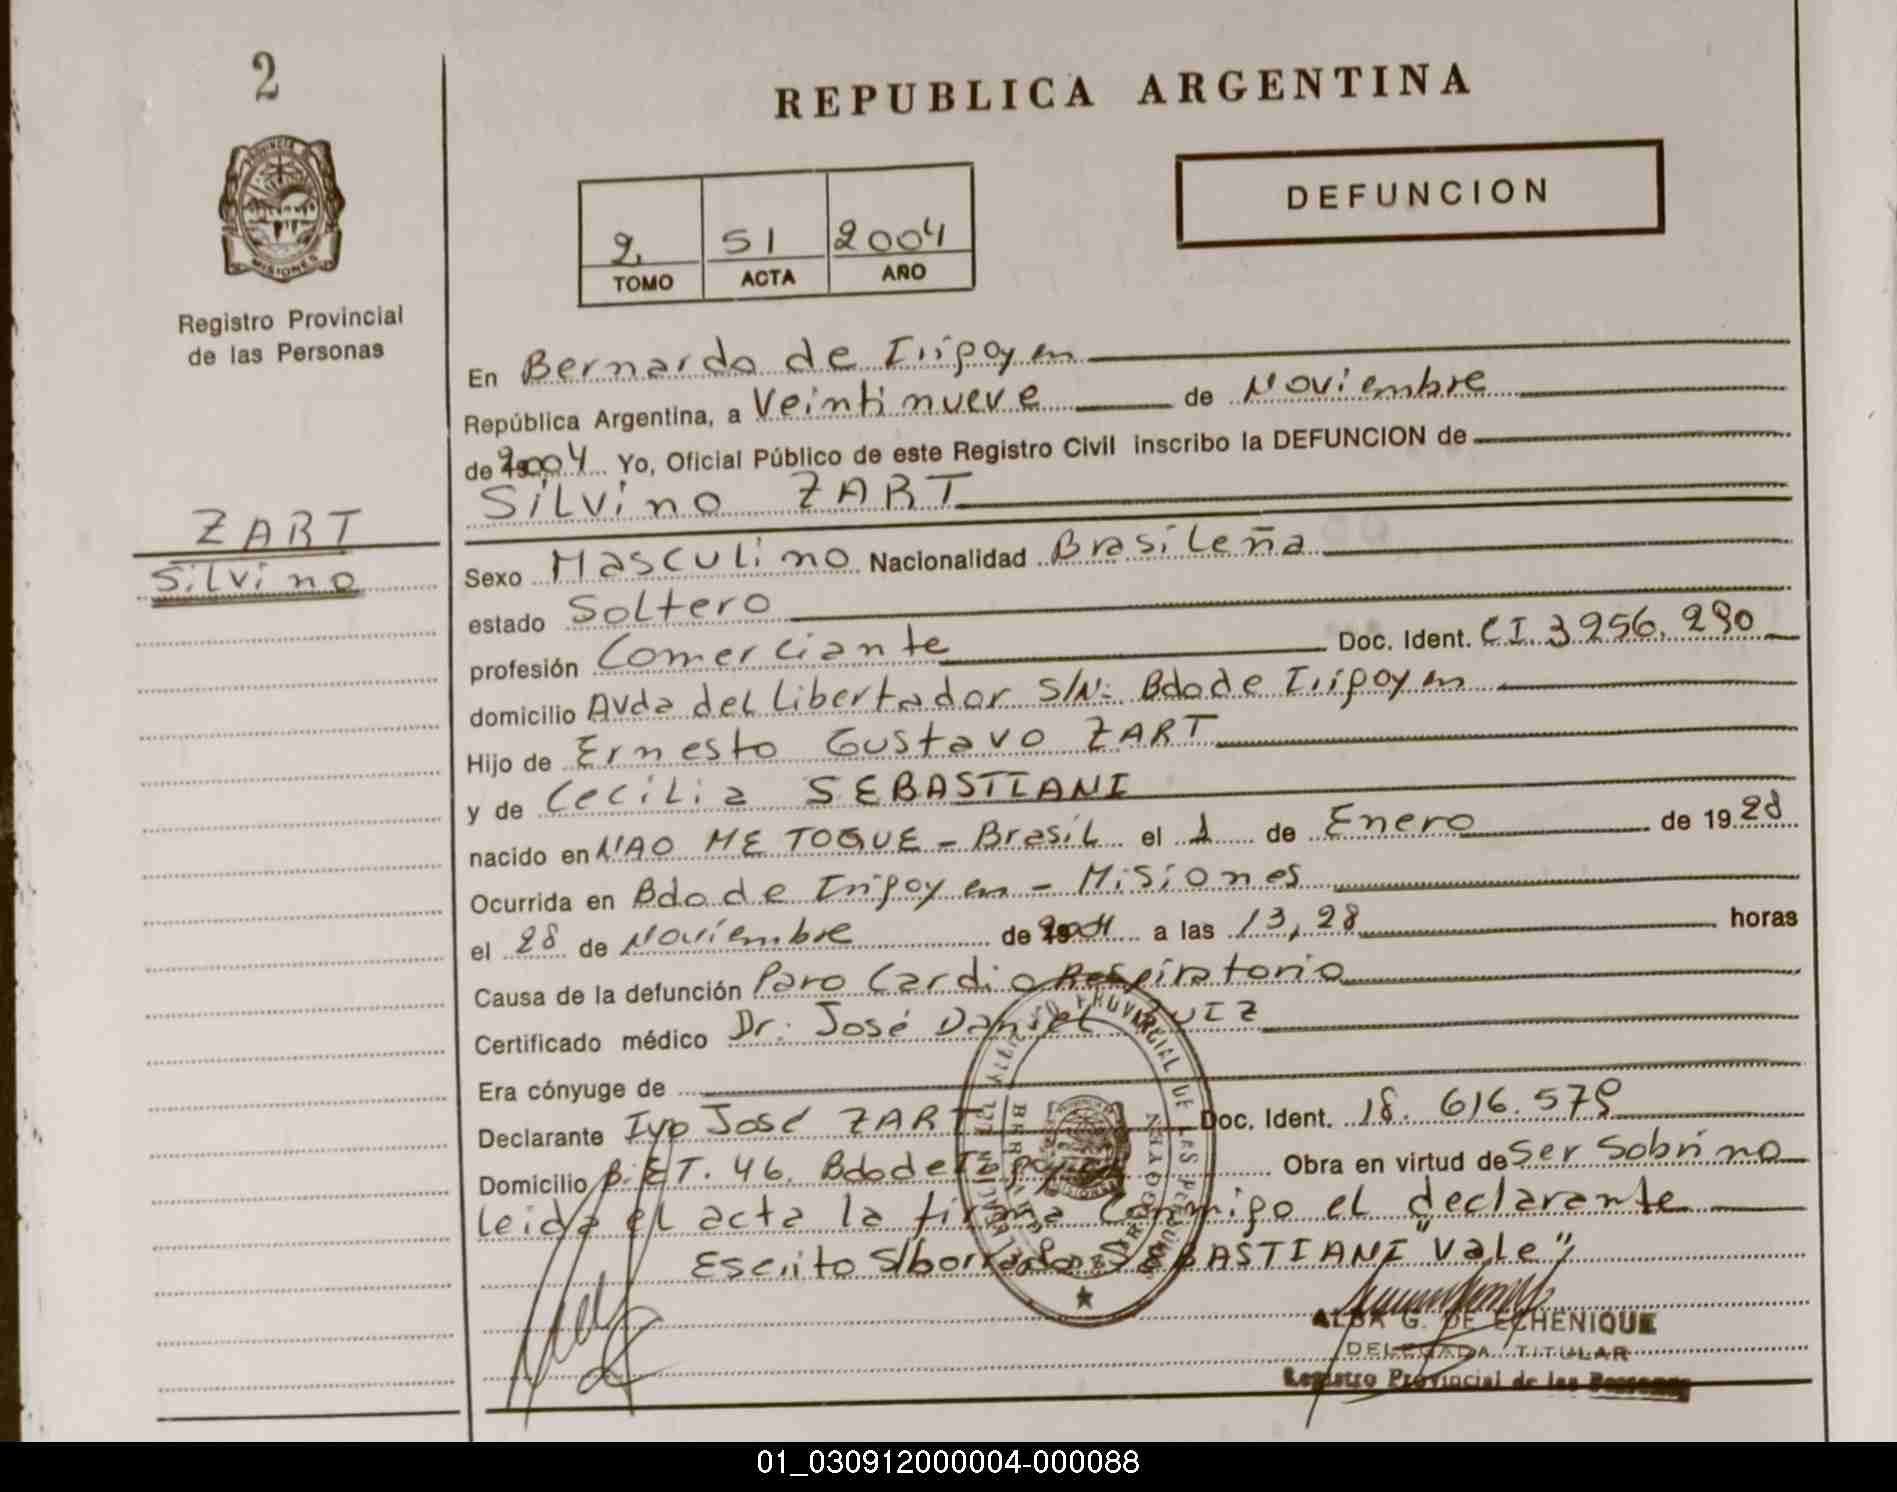 2
REPUBLICA ARGENTINA
PROVINCIA
MISIONES
Registro Provincial
de las Personas
DEFUNCION
2. 51 2004
TOMO ACTA AÑO
En Bernardo de Irigoyen
República Argentina, a Veintinueve de Noviembre
de 2004 Yo, Oficial Público de este Registro Civil inscribo la DEFUNCION de
Silvino ZART
ZART
Silvino
Sexo Masculino Nacionalidad Brasileña
estado Soltero
profesión Comerciante Doc. Ident. CI 3256.290
domicilio Avda del Libertador S/N: Bdo de Irigoyen
Hijo de Ernesto Gustavo ZART
y de Cecilia SEBASTIANI
nacido en NAO ME TOQUE - Brasil el 1 de Enero de 1928
Ocurrida en Bdo de Irigoyen - Misiones
el 28 de Noviembre de 2004 a las 13,28 horas
Causa de la defunción Paro Cardio Respiratorio
Certificado médico Dr. José Daniel RUIZ
Era cónyuge de
Declarante Ivo José ZART Doc. Ident. 18.616.579
Domicilio B. ET. 46. Bdo de Irigoyen Obra en virtud de Ser Sobrino
leida el acta la firma Conmigo el declarante
Escrito S/borrado SEBASTIANI "Vale"
PROVINCIAL DE LAS PERSONAS
ALBA G. DE ECHENIQUE
DELEGADA TITULAR
Registro Provincial de las Personas
01_030912000004-000088